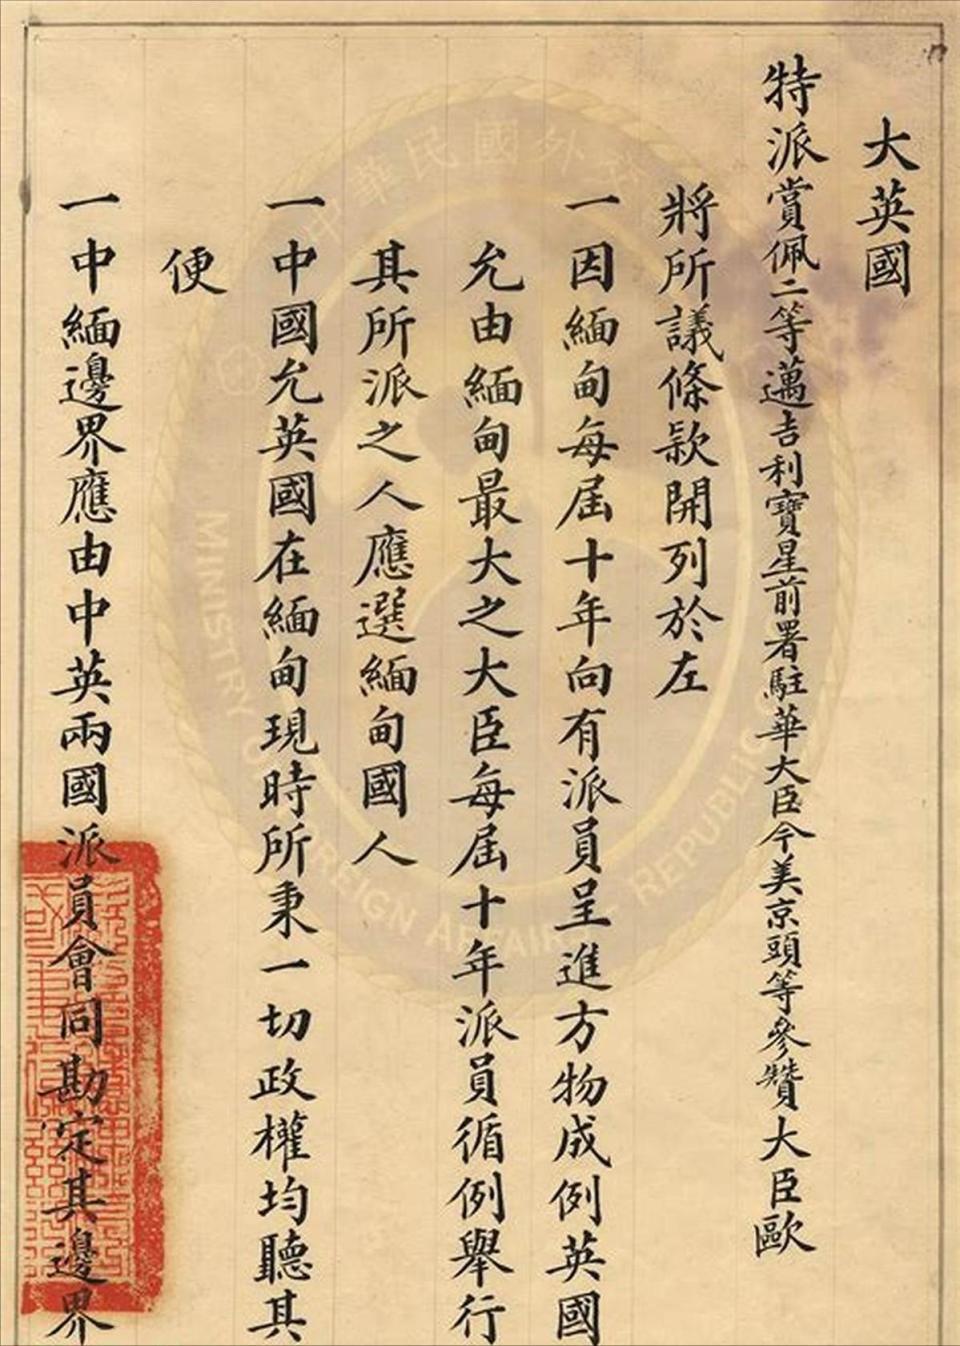 大英國
特派賞佩二等邁吉利寶星前署駐華大臣今美京頭等參贊大臣歐
將所議條款開列於左
一因緬甸每屆十年向有派員呈進方物成例英國
允由緬甸最大之大臣每屆十年派員循例舉行
其所派之人應選緬甸國人
一中國允英國在緬甸現時所秉一切政權均聽其
便
一中緬邊界應由中英兩國派員會同勘定其邊界
中華民國外
MINISTRY OF FOREIGN AFFAIRS REPUBLIC